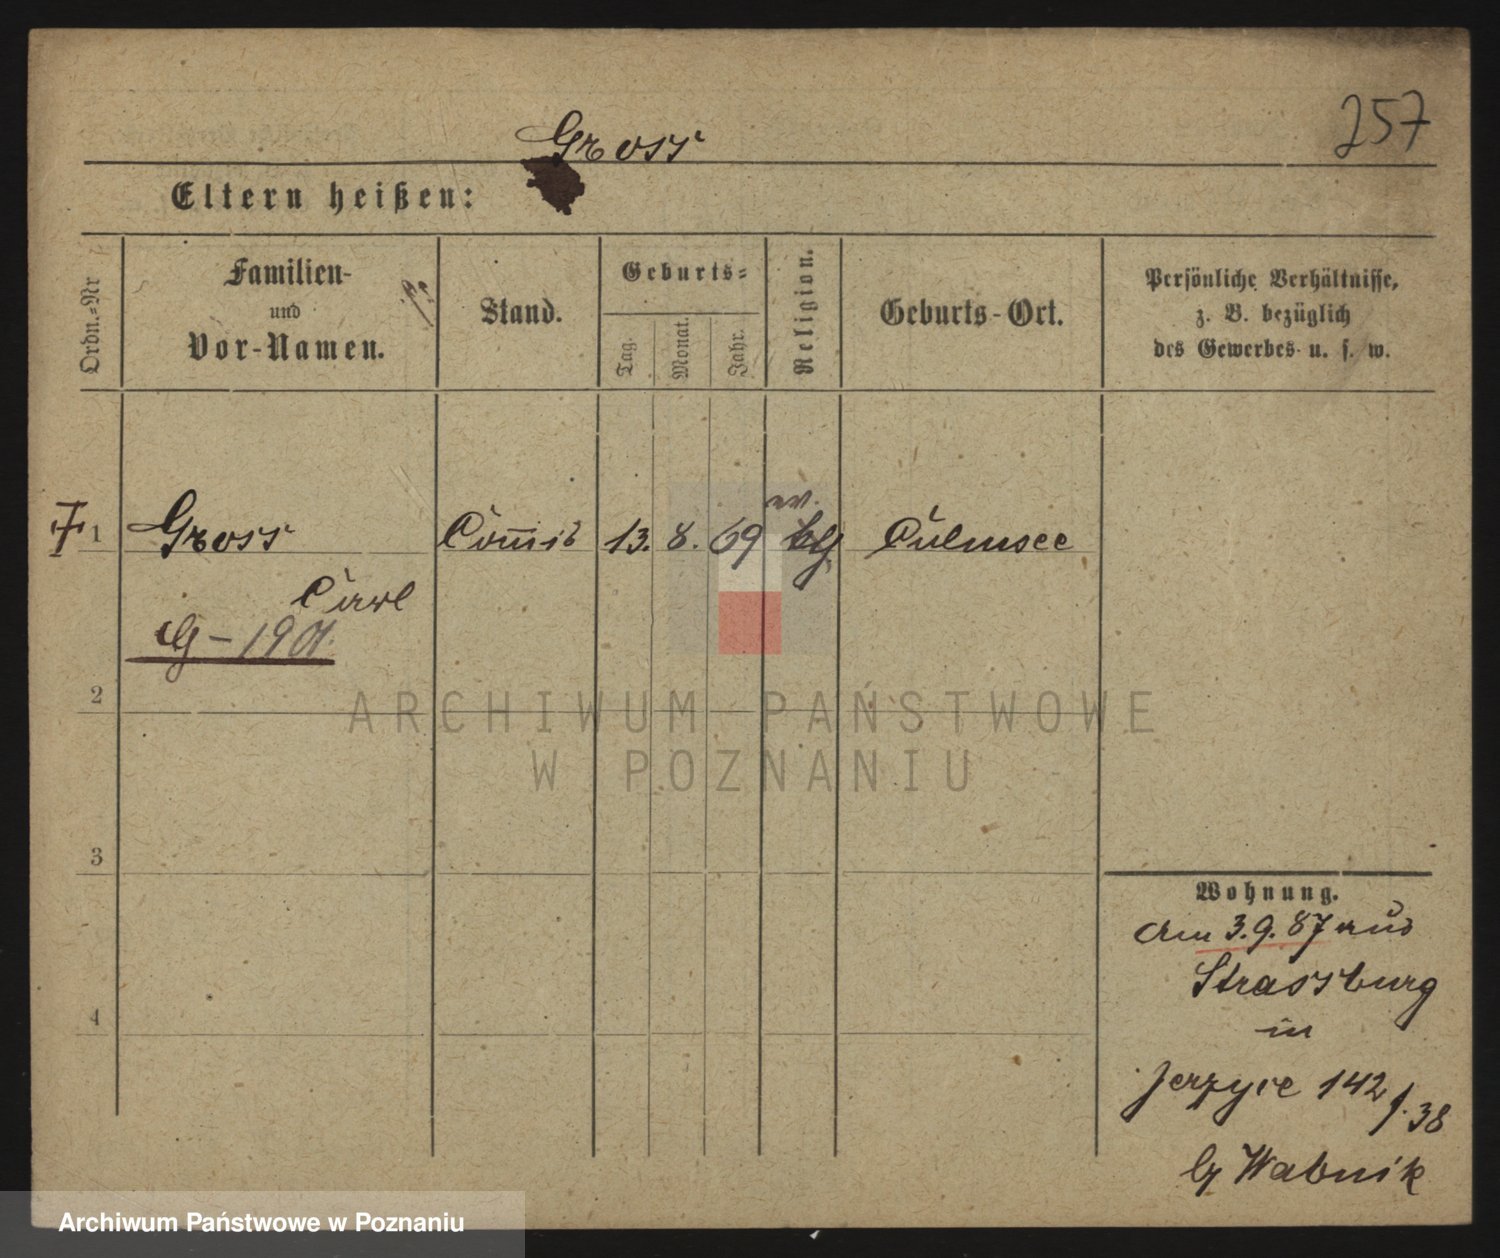 257
Gross
Eltern heißen:
Ordn.-Nr
Familien-
und
Vor-Namen.
Stand.
Geburts-
Tag.
Monat.
Jahr.
Religion.
Geburts-Ort.
Persönliche Verhältnisse,
z. B. bezüglich
des Gewerbes u. s. w.
ev.
1 Gross Com̅is 13. 8. 69 Culmsee
Carl
G - 1901.
2
3
4
Wohnung.
Am 3.9.87 aus
Strassburg
in
Jerzyce 142
38
Wabnik
ARCHIWUM PAŃSTWOWE
W POZNANIU
Archiwum Państwowe w Poznaniu